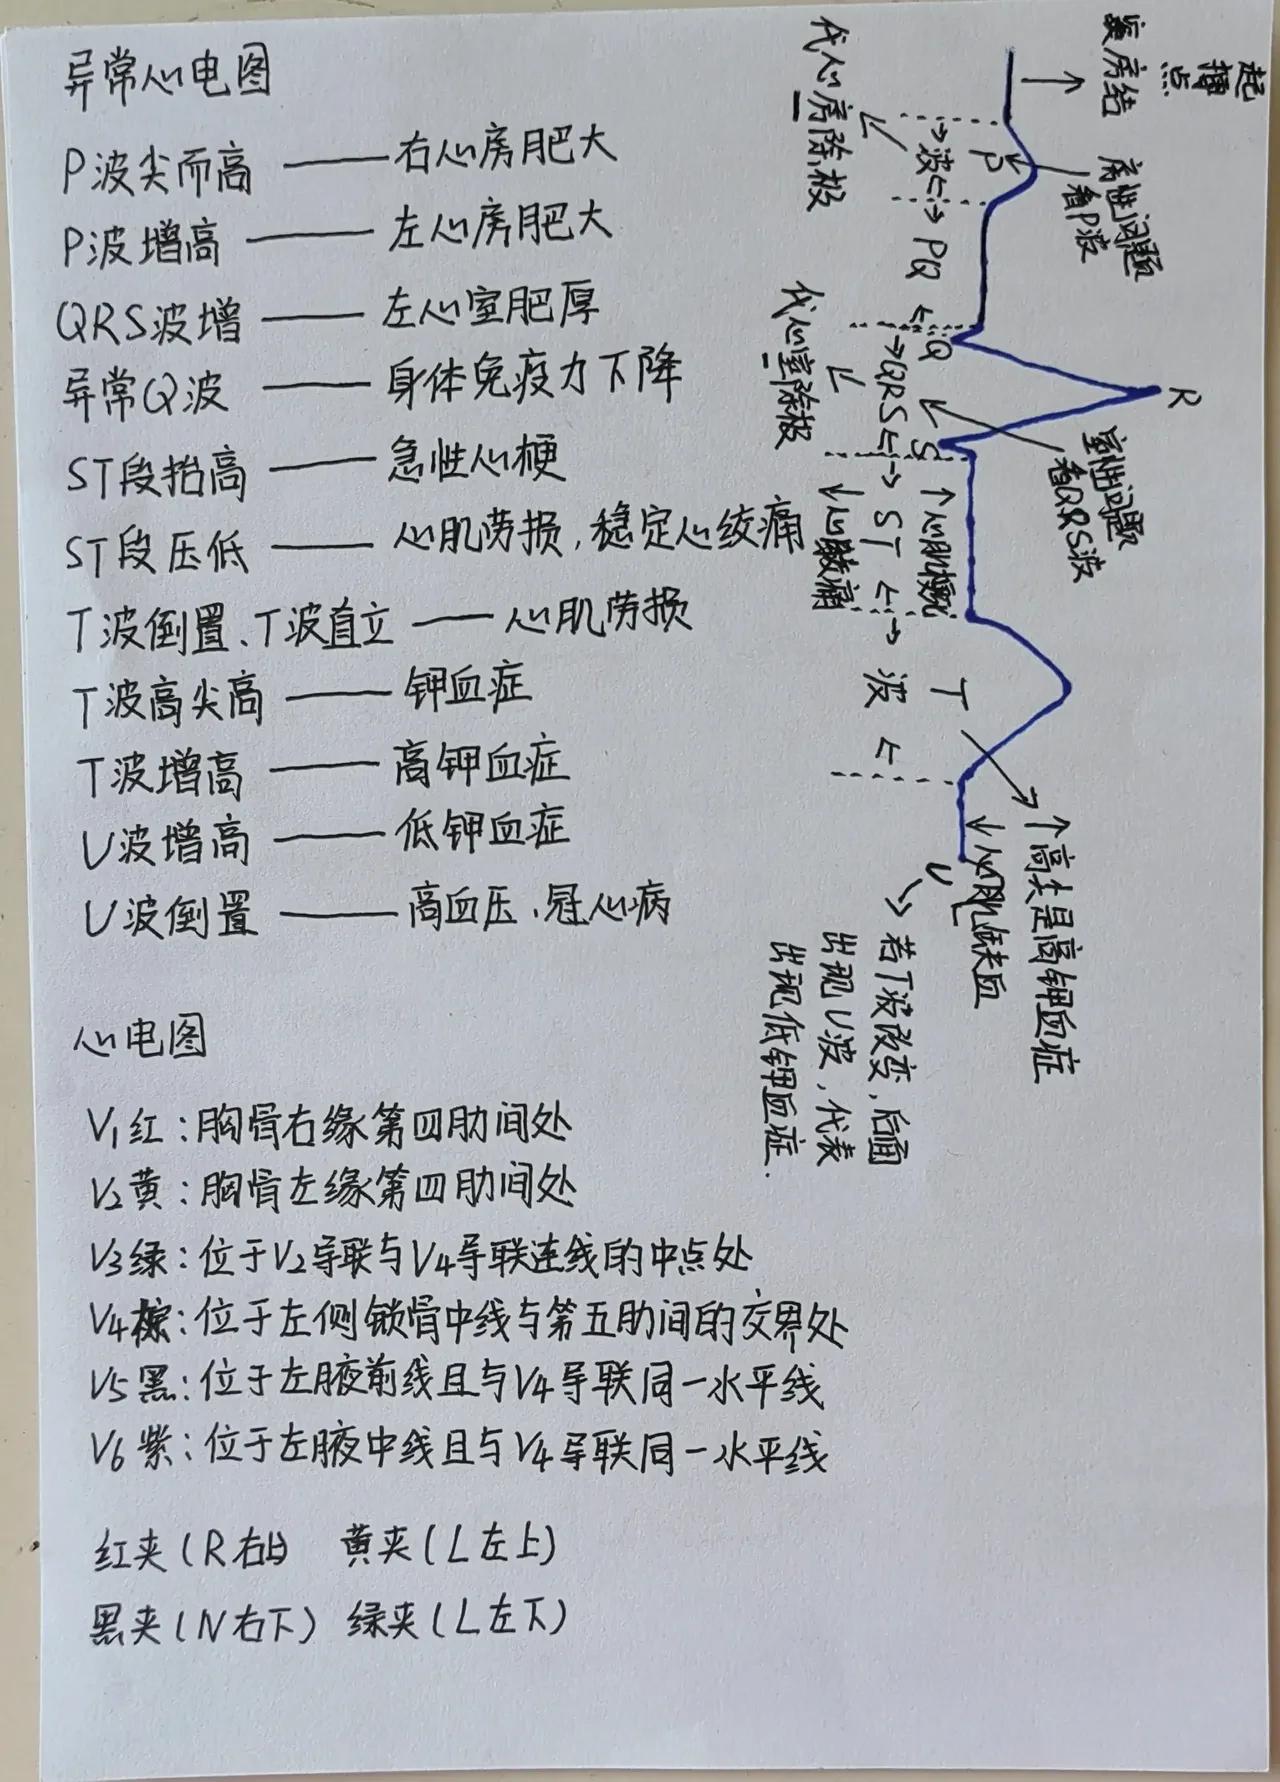 异常心电图
P波尖而高 —— 右心房肥大
P波增高 —— 左心房肥大
QRS波增 —— 左心室肥厚
异常Q波 —— 身体免疫力下降
ST段抬高 —— 急性心梗
ST段压低 —— 心肌劳损,稳定心绞痛
T波倒置、T波直立 —— 心肌劳损
T波高尖高 —— 钾血症
T波增高 —— 高钾血症
U波增高 —— 低钾血症
U波倒置 —— 高血压、冠心病
心电图
V1红:胸骨右缘第四肋间处
V2黄:胸骨左缘第四肋间处
V3绿:位于V2导联与V4导联连线的中点处
V4棕:位于左侧锁骨中线与第五肋间的交界处
V5黑:位于左腋前线且与V4导联同一水平线
V6紫:位于左腋中线且与V4导联同一水平线
红夹(R右上) 黄夹(L左上)
黑夹(N右下) 绿夹(L左下)
起搏点
窦房结
房性问题
看P波
室性问题
看QRS波
R
P
Q
S
T
U
波
PQ
QRS
ST
波
代心房除极
代心室除极
↑心肌梗死
↓心绞痛
↑高尖是高钾血症
↓心肌缺血
若T波改变,后面
出现U波,代表
出现低钾血症.